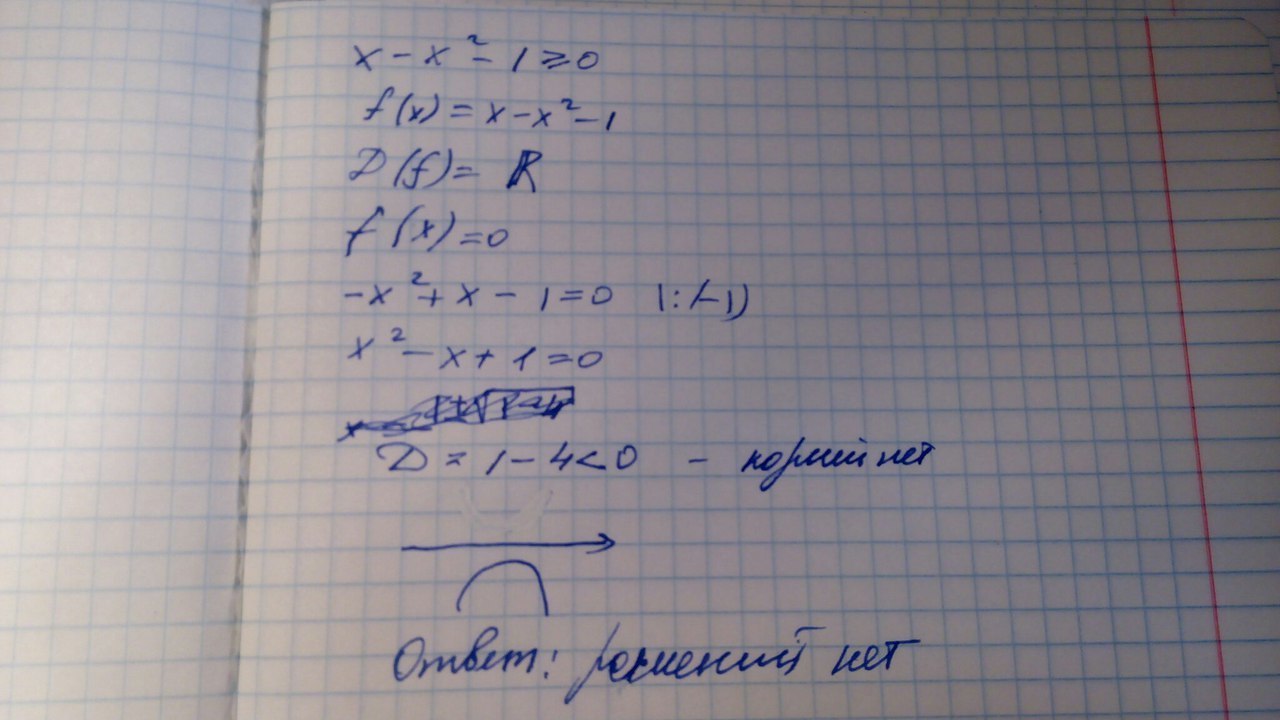 x - x² - 1 ≥ 0
f(x) = x - x² - 1
D(f) = ℝ
f(x) = 0
-x² + x - 1 = 0 |:(-1)
x² - x + 1 = 0
D = 1 - 4 < 0 - корней нет
Ответ: решений нет